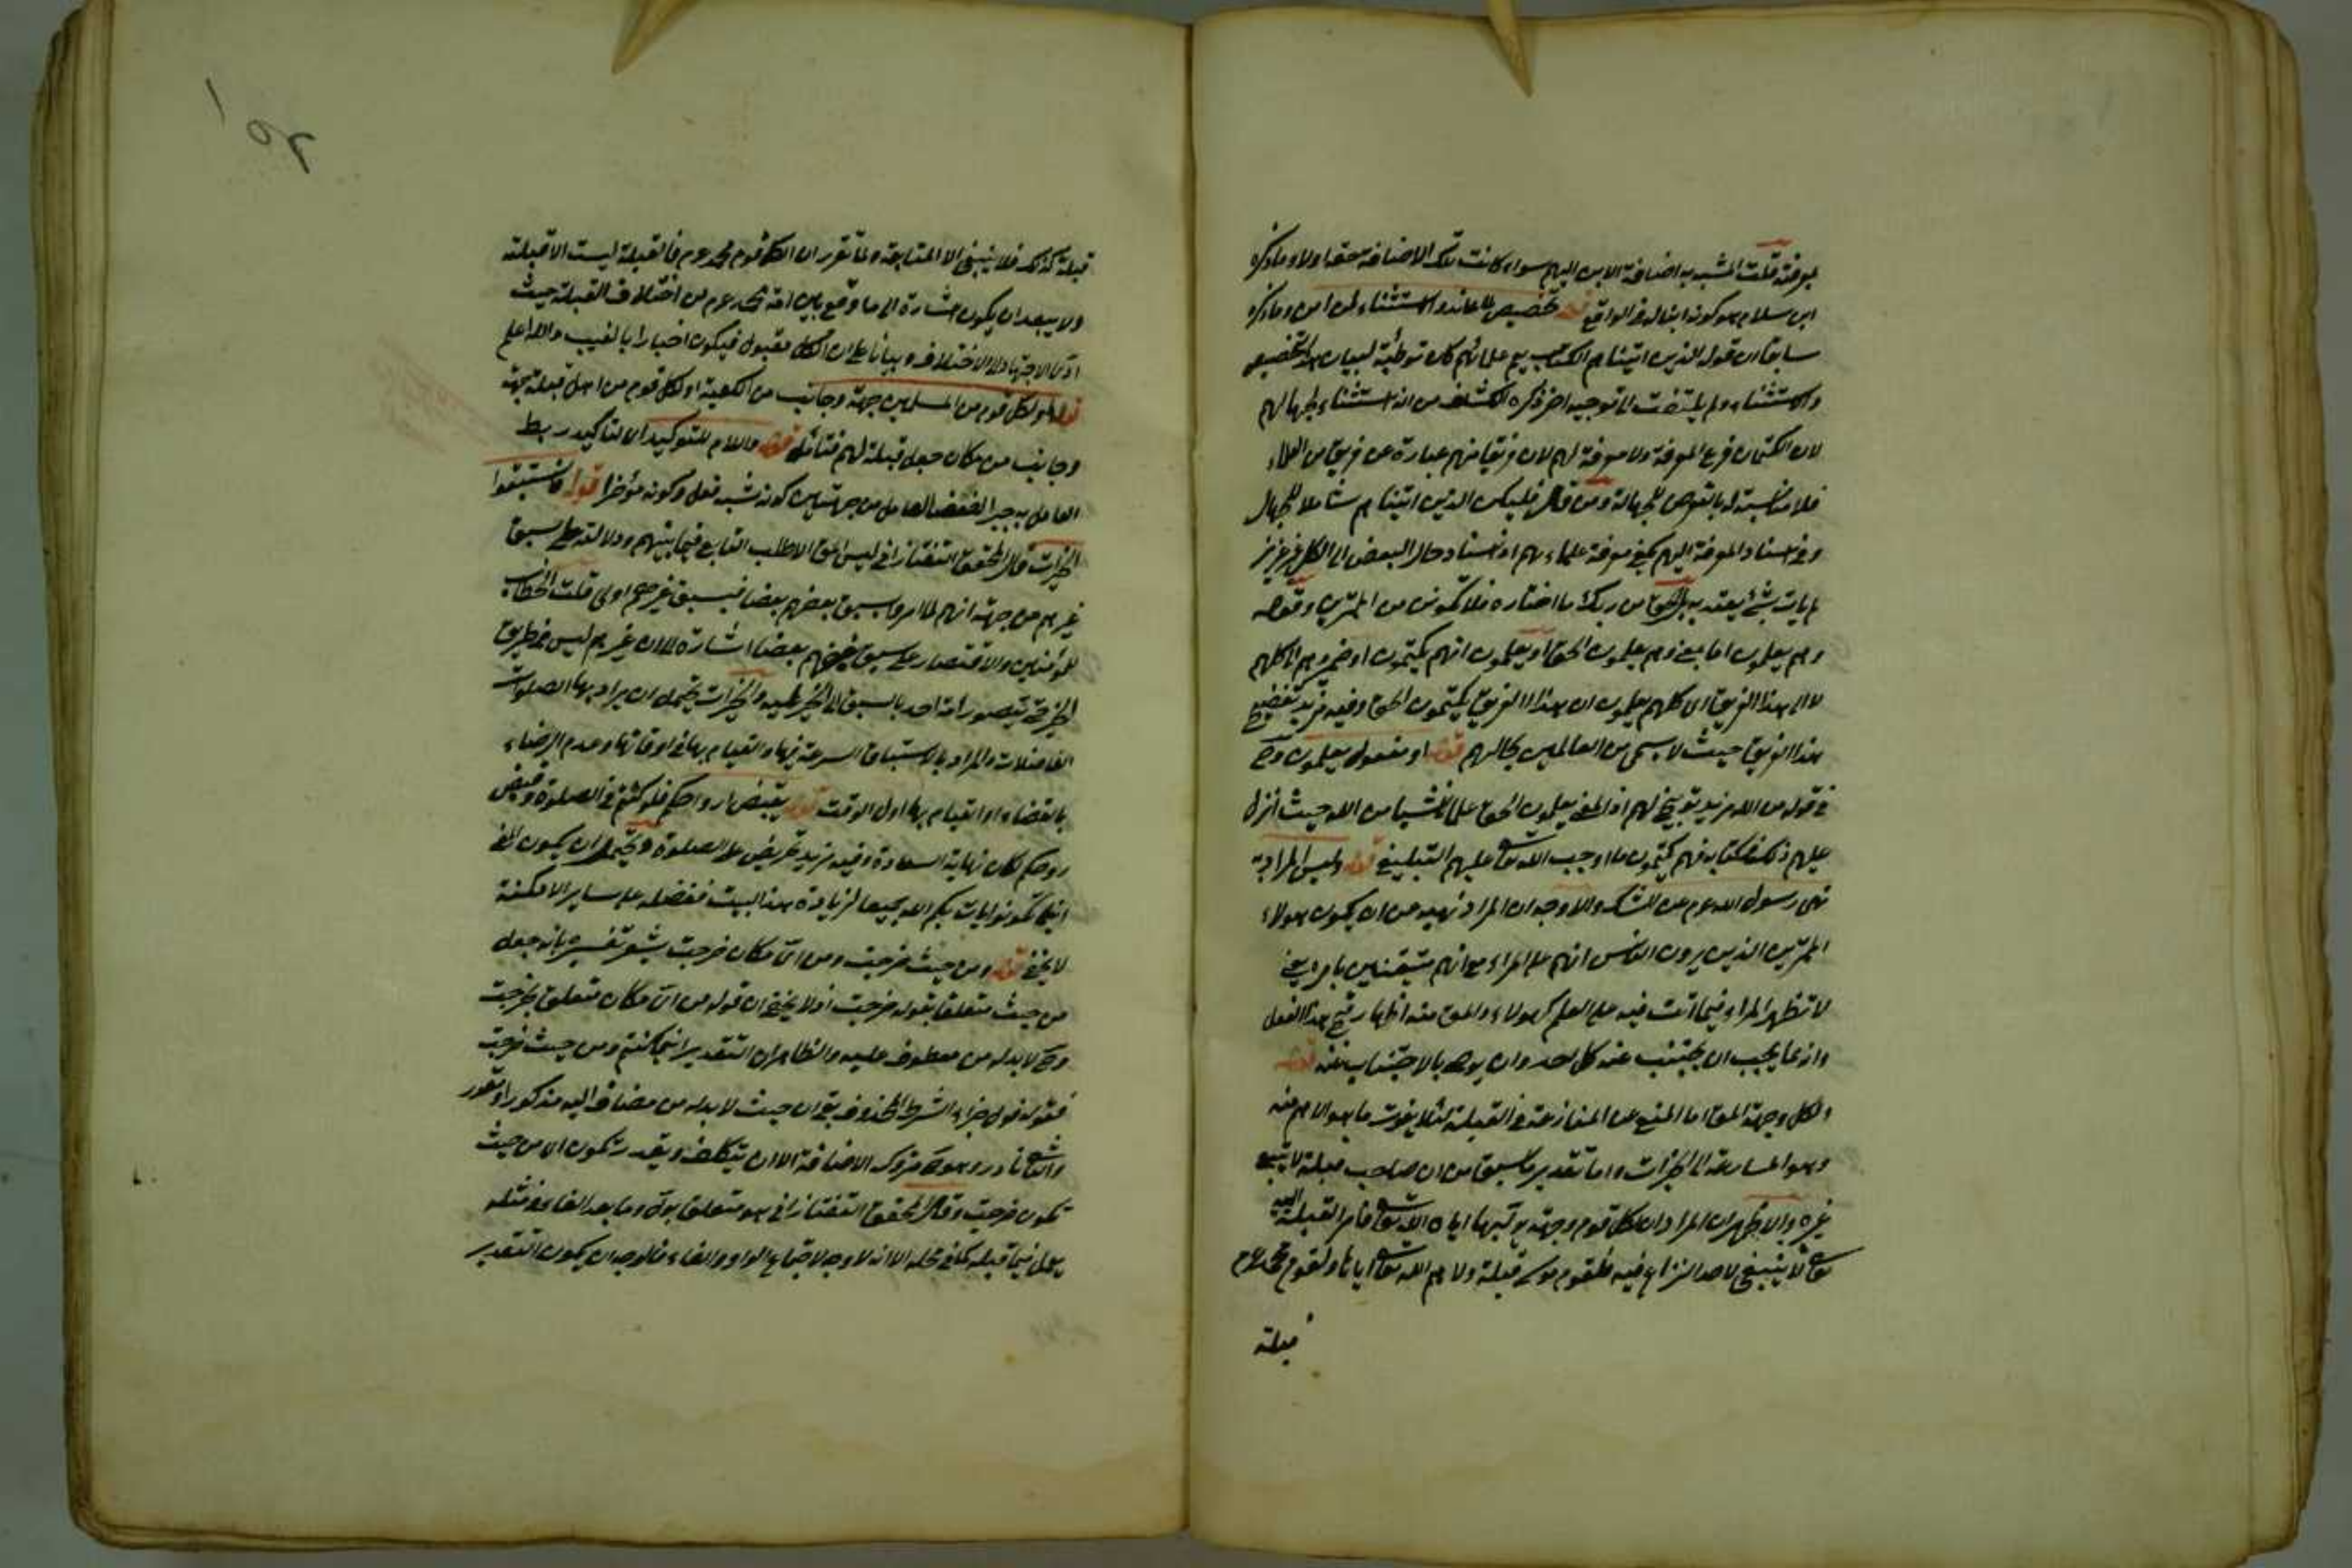 لمعرفته قلت المشبه به اضافة الابن اليهم سواء كانت تلك الاضافة حقه اولا وما ذكره
ابن سلام هو كونه ابنا له في الواقع قوله تخصيص للمعاند واستثناء لمن امن وما ذكره
سابقا ان قوله الذين اتيناهم الكتاب يعم علمائهم كان توطئة لبيان هذا التخصيص
والاستثناء ولم يلتفت الى توجيه اخر ذكره الكشاف من انه استثناء لجهالهم
لان الكتمان فرع المعرفة ولا معرفة لهم لان فريقا منهم عبارة عن فريق من العلماء
فلا مناسبة له بالتعرض للجهالة ومن قال فليكن الذين اتيناهم شاملا للجهال
وفي اسناد المعرفة اليهم يكفي معرفة علماءهم اذ اسناد حال البعض الى الكل غير عزيز
لم يات بشئ يعتد به الحق من ربك ما اختاره فلا تكونن من الممترين وقوله
وهم يعلمون اما بمعنى وهم يعلمون الحق او يعلمون انهم يكتمون او ضمير هم الى كلهم
لا الى هذا الفريق اى كلهم يعلمون ان هذا الفريق يكتمون الحق وفيه مزيد تفضيح
هذا الفريق حيث لا يسمى من العالمين بحالهم قوله او مفعول يعلمون وح
في قوله من الله مزيد توبيخ لهم اذ المعنى يعلمون الحق علما ناشيا من الله حيث انزل
عليهم ذلك في كتابه فهم يكتمون ما اوجب الله تعالى عليهم التبليغ قوله وليس المراد به
نهى رسول الله عم عن الشك والاوجه ان المراد نهيه عن ان يكون هولاء
الممترين الذين يرون الناس انهم على المراء مع انهم متيقنين بامر يعني
لا تظهر المراء فيما انت فيه على العلم كهولاء والمق منه اظهار قبح هذا الفعل
وانه مما يجب ان يجتنب عنه كل احد وان يوصى بالاجتناب عنه قوله
ولكل وجهة المق اما المنع عن المنازعة في القبلة لئلا يفوت ما هو الاهم منه
وهو المسارعة الى الخيرات واما تقدير ما سبق من ان صاحب قبلة لا يتبع
غيره والاظهر ان المراد ان لكل قوم وجهة يوليها اياه الله تعالى فامر القبلة اليه
تعالى لا ينبغي لاحد النزاع فيه فلقوم موسى قبلة ولاهم الله تعالى اياها ولقوم محمد عم
قبلة
قبلة كذلك فلا ينبغي الا المتابعة ولما تقرر ان الكل قوم محمد عم فالقبلة ليست الا قبلته
ولا يبعد ان يكون اشارة الى ما وقع بين امة محمد عم من اختلاف القبلة حيث
ادى الاجتهاد الى الاختلاف وبيانا على ان الكل مقبول فيكون اخبارا بالغيب والله اعلم
قوله ولكل قوم من المسلمين جهة وجانب من الكعبة او لكل قوم من اهل قبلة جهة
وجانب من مكان جعل قبلة لهم فتأمل قوله واللام للتوكيد اى لتأكيد ربط
العامل به جبرا لضعف العامل من جهتين كونه شبه فعل وكونه مؤخرا قوله فاستبقوا
الخيرات قال المحقق التفتازاني ليس المق الا طلب التسابق فيما بينهم ودلالته على سبق
غيرهم من جهة انهم لما امروا بسبق بعضهم بعضا فبسبق غيرهم اولى قلت الخطاب
للمؤمنين والاقتصار على سبق بعضهم بعضا اشارة الى ان غيرهم ليس في طريق
الخير حتى يتصور امة احد بالسبق الى الخير عليه والخيرات يحتمل ان يراد بها الصلوات
الفاضلات والمراد بالاستباق السرعة فيها والقيام بها في اوقاتها وعدم الرضاء
بالقضاء او القيام بها اول الوقت قوله يقبض ارواحكم فلو كنتم في الصلوة وقبض
روحكم لكان نهاية السعادة وفيه مزيد تحريض على الصلوة ويحتمل ان يكون المعنى
اينما تكونوا يات بكم الله جميعا لزيادة هذا البيت ففضله على سائر الامكنة
لا يخفى قوله ومن حيث خرجت ومن اى مكان خرجت يشعر تفسيره بانه جعل
من حيث متعلقا بقوله خرجت اذ لا يخفى ان قوله من اى مكان متعلق بخرجت
وح لا بد له من معطوف عليه والظاهر ان التقدير اينما كنتم ومن حيث خرجت
فقوله فول جزاء الشرط المحذوف بقى ان حيث لا بد له من مضاف اليه مذكور او مقدر
والثاني نادر وهو ح متروك الاضافة الا ان يتكلف ويقدر تكون اى من حيث
تكون خرجت وقال المحقق التفتازاني هو متعلق بول وما بعد الفاء في مثله
يعمل فيما قبله كما في محله الا انه لا وجه لاجتماع الواو والفاء فالوجه ان يكون التقدير